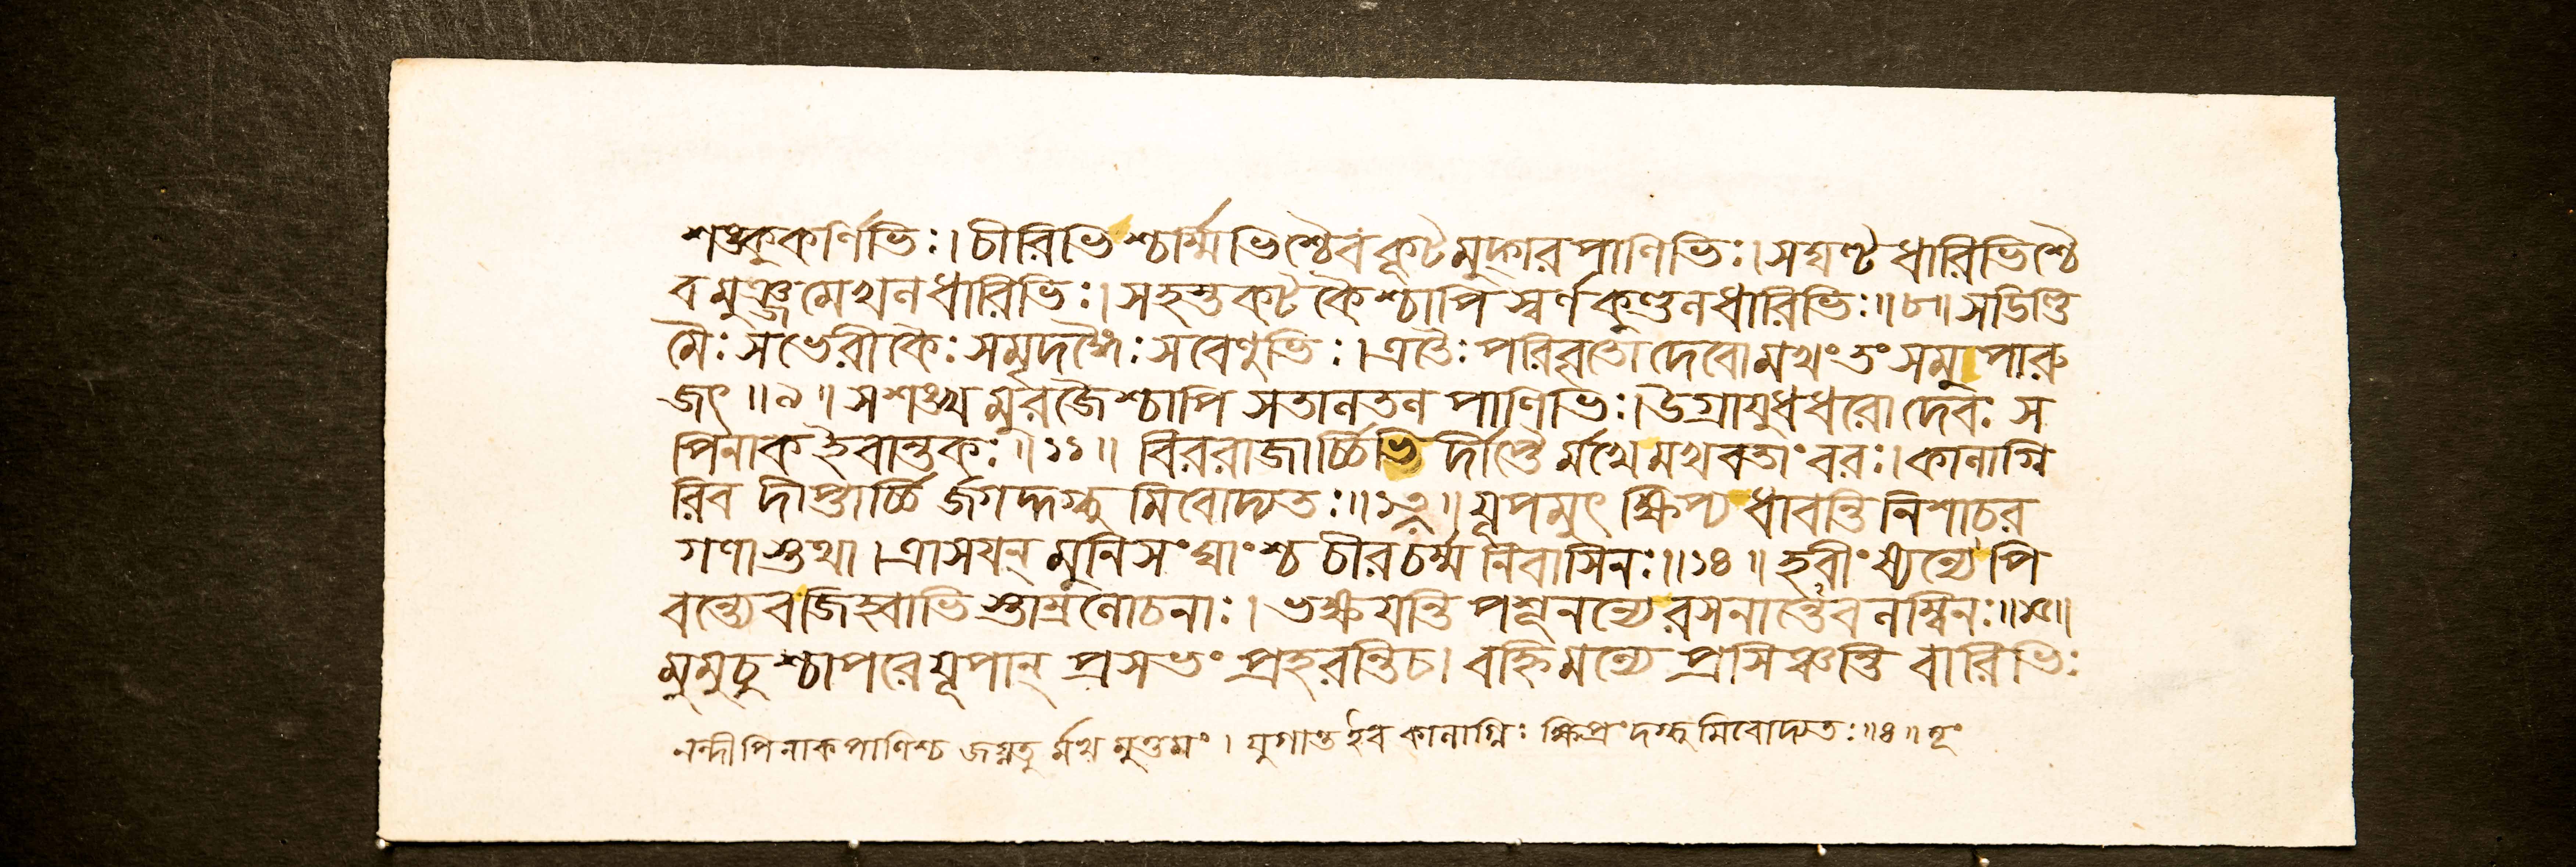 শঙ্কুকর্ণিভিঃ। চীরিভিশ্চার্ম্মিভিশ্চৈব কূটমুদ্গরপাণিভিঃ। সঘণ্টধারিভিশ্চৈ
ব মুঞ্জমেখলধারিভিঃ। সহস্তকটকৈশ্চাপি স্বর্ণকুণ্ডলধারিভিঃ॥৮॥ সডিণ্ডি
মৈঃ সভেরীকৈঃ সমৃদঙ্গৈঃ সবেণুভিঃ। এতৈঃ পরিবৃতো দেবো মখং তং সমুপারু
জৎ॥৯॥ সশঙ্খমুরজৈশ্চাপি সতালতল পাণিভিঃ। উগ্রায়ুধধরো দেবঃ স
পিনাক ইবান্তকঃ॥১১॥ বিররাজার্চ্চিভির্দীপ্তৈর্মখে মখবতাং বরঃ। কালাগ্নি
রিব দীপ্তার্চ্চির্জগদ্দগ্ধুমিবোদ্যতঃ॥১৩॥ যূপমুৎক্ষিপ্য ধাবন্তি নিশাচর
গণাস্তথা। ত্রাসয়ন্ মুনিসংঘাংশ্চ চীরচর্ম্মনিবাসিনঃ॥১৪॥ হবীংষ্যন্যে পি
বন্ত্যেব জিহ্বাভিস্তাম্রলোচনাঃ। ভক্ষয়ন্তি পশূনন্যে রসনান্তৈর্বলম্বিনঃ॥১৫॥
মুমুচুশ্চাপরে যূপান্ প্রসভং প্রহরন্তি চ। বহ্নিমন্যে প্রসিঞ্চন্তি বারিভিঃ
নন্দী পিনাকপাণিশ্চ জঘ্নতুর্মখমুত্তমং। যুগান্ত ইব কালাগ্নিঃ ক্ষিপ্রং দগ্ধুমিবোদ্যতঃ॥৪॥